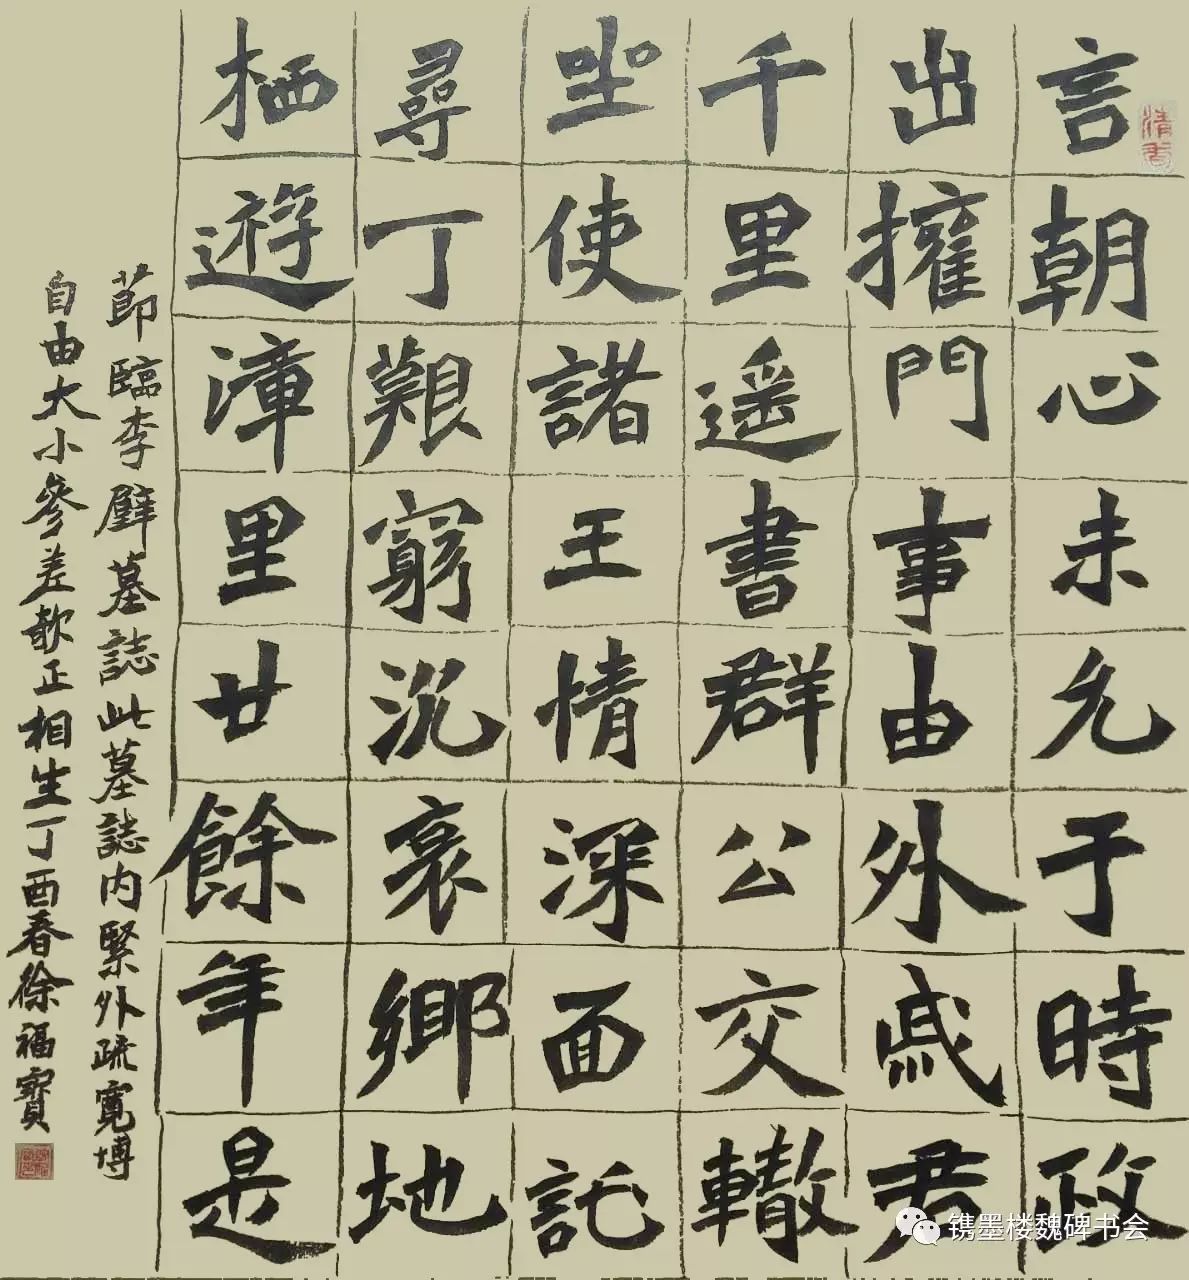 言朝心未允于時政
出擁門事由外戚君
千里遥書群公交轍
坐使諸王情深面託
尋丁艱窮沉哀鄉地
栖遊漳里廿餘年是
節臨李壁墓誌此墓誌内緊外疏寬博
自由大小參差欹正相生丁酉春徐福寶
镌墨楼魏碑书会